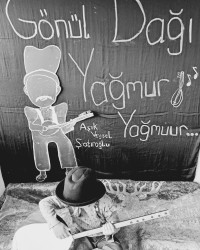 Gönül Dağı
Yağmur
Yağmuur...
Aşık
Veysel
Şatıroğlu